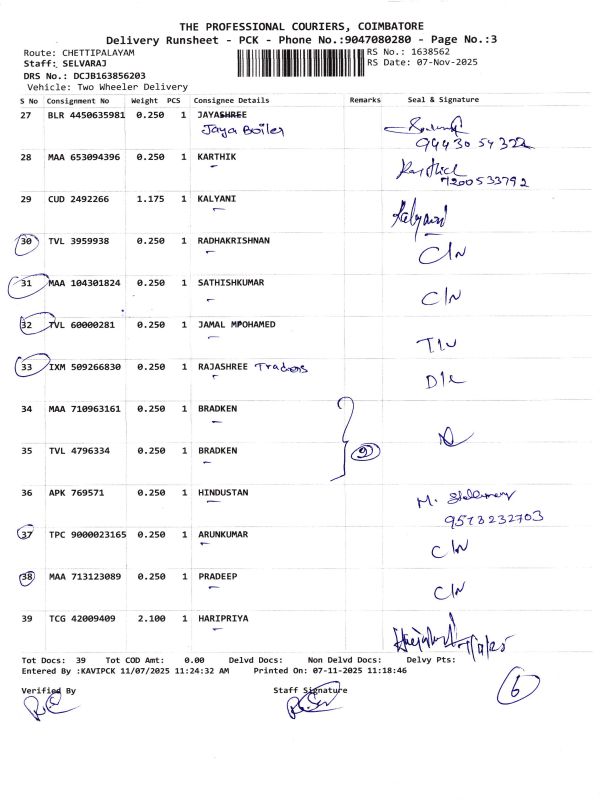 THE PROFESSIONAL COURIERS, COIMBATORE
Delivery Runsheet - PCK - Phone No.:9047080280 - Page No.:3
Route: CHETTIPALAYAM RS No.: 1638562
Staff: SELVARAJ RS Date: 07-Nov-2025
DRS No.: DCJB163856203
Vehicle: Two Wheeler Delivery
S No Consignment No Weight PCS Consignee Details Remarks Seal & Signature
27 BLR 4450635981 0.250 1 JAYASHREE
Jaya Boiler
94430 54322
28 MAA 653094396 0.250 1 KARTHIK
Karthick
7200533792
29 CUD 2492266 1.175 1 KALYANI
Kalyani
30 TVL 3959938 0.250 1 RADHAKRISHNAN
C/N
31 MAA 104301824 0.250 1 SATHISHKUMAR
C/N
32 TVL 60000281 0.250 1 JAMAL MPOHAMED
33 IXM 509266830 0.250 1 RAJASHREE Traders
D/L
34 MAA 710963161 0.250 1 BRADKEN
35 TVL 4796334 0.250 1 BRADKEN
36 APK 769571 0.250 1 HINDUSTAN
9578232703
37 TPC 9000023165 0.250 1 ARUNKUMAR
C/N
38 MAA 713123089 0.250 1 PRADEEP
C/N
39 TCG 42009409 2.100 1 HARIPRIYA
Tot Docs: 39 Tot COD Amt: 0.00 Delvd Docs: Non Delvd Docs: Delvy Pts:
Entered By :KAVIPCK 11/07/2025 11:24:32 AM Printed On: 07-11-2025 11:18:46
6
Verified By Staff Signature